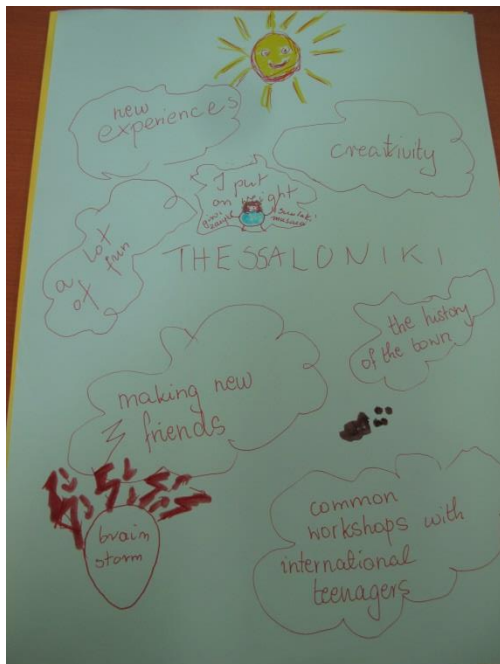 new
experiences
creativity
I put
on weight
a lot
of fun
THESSALONIKI
the history
of the town
making new
friends
brain
storm
common
workshops with
international
teenagers